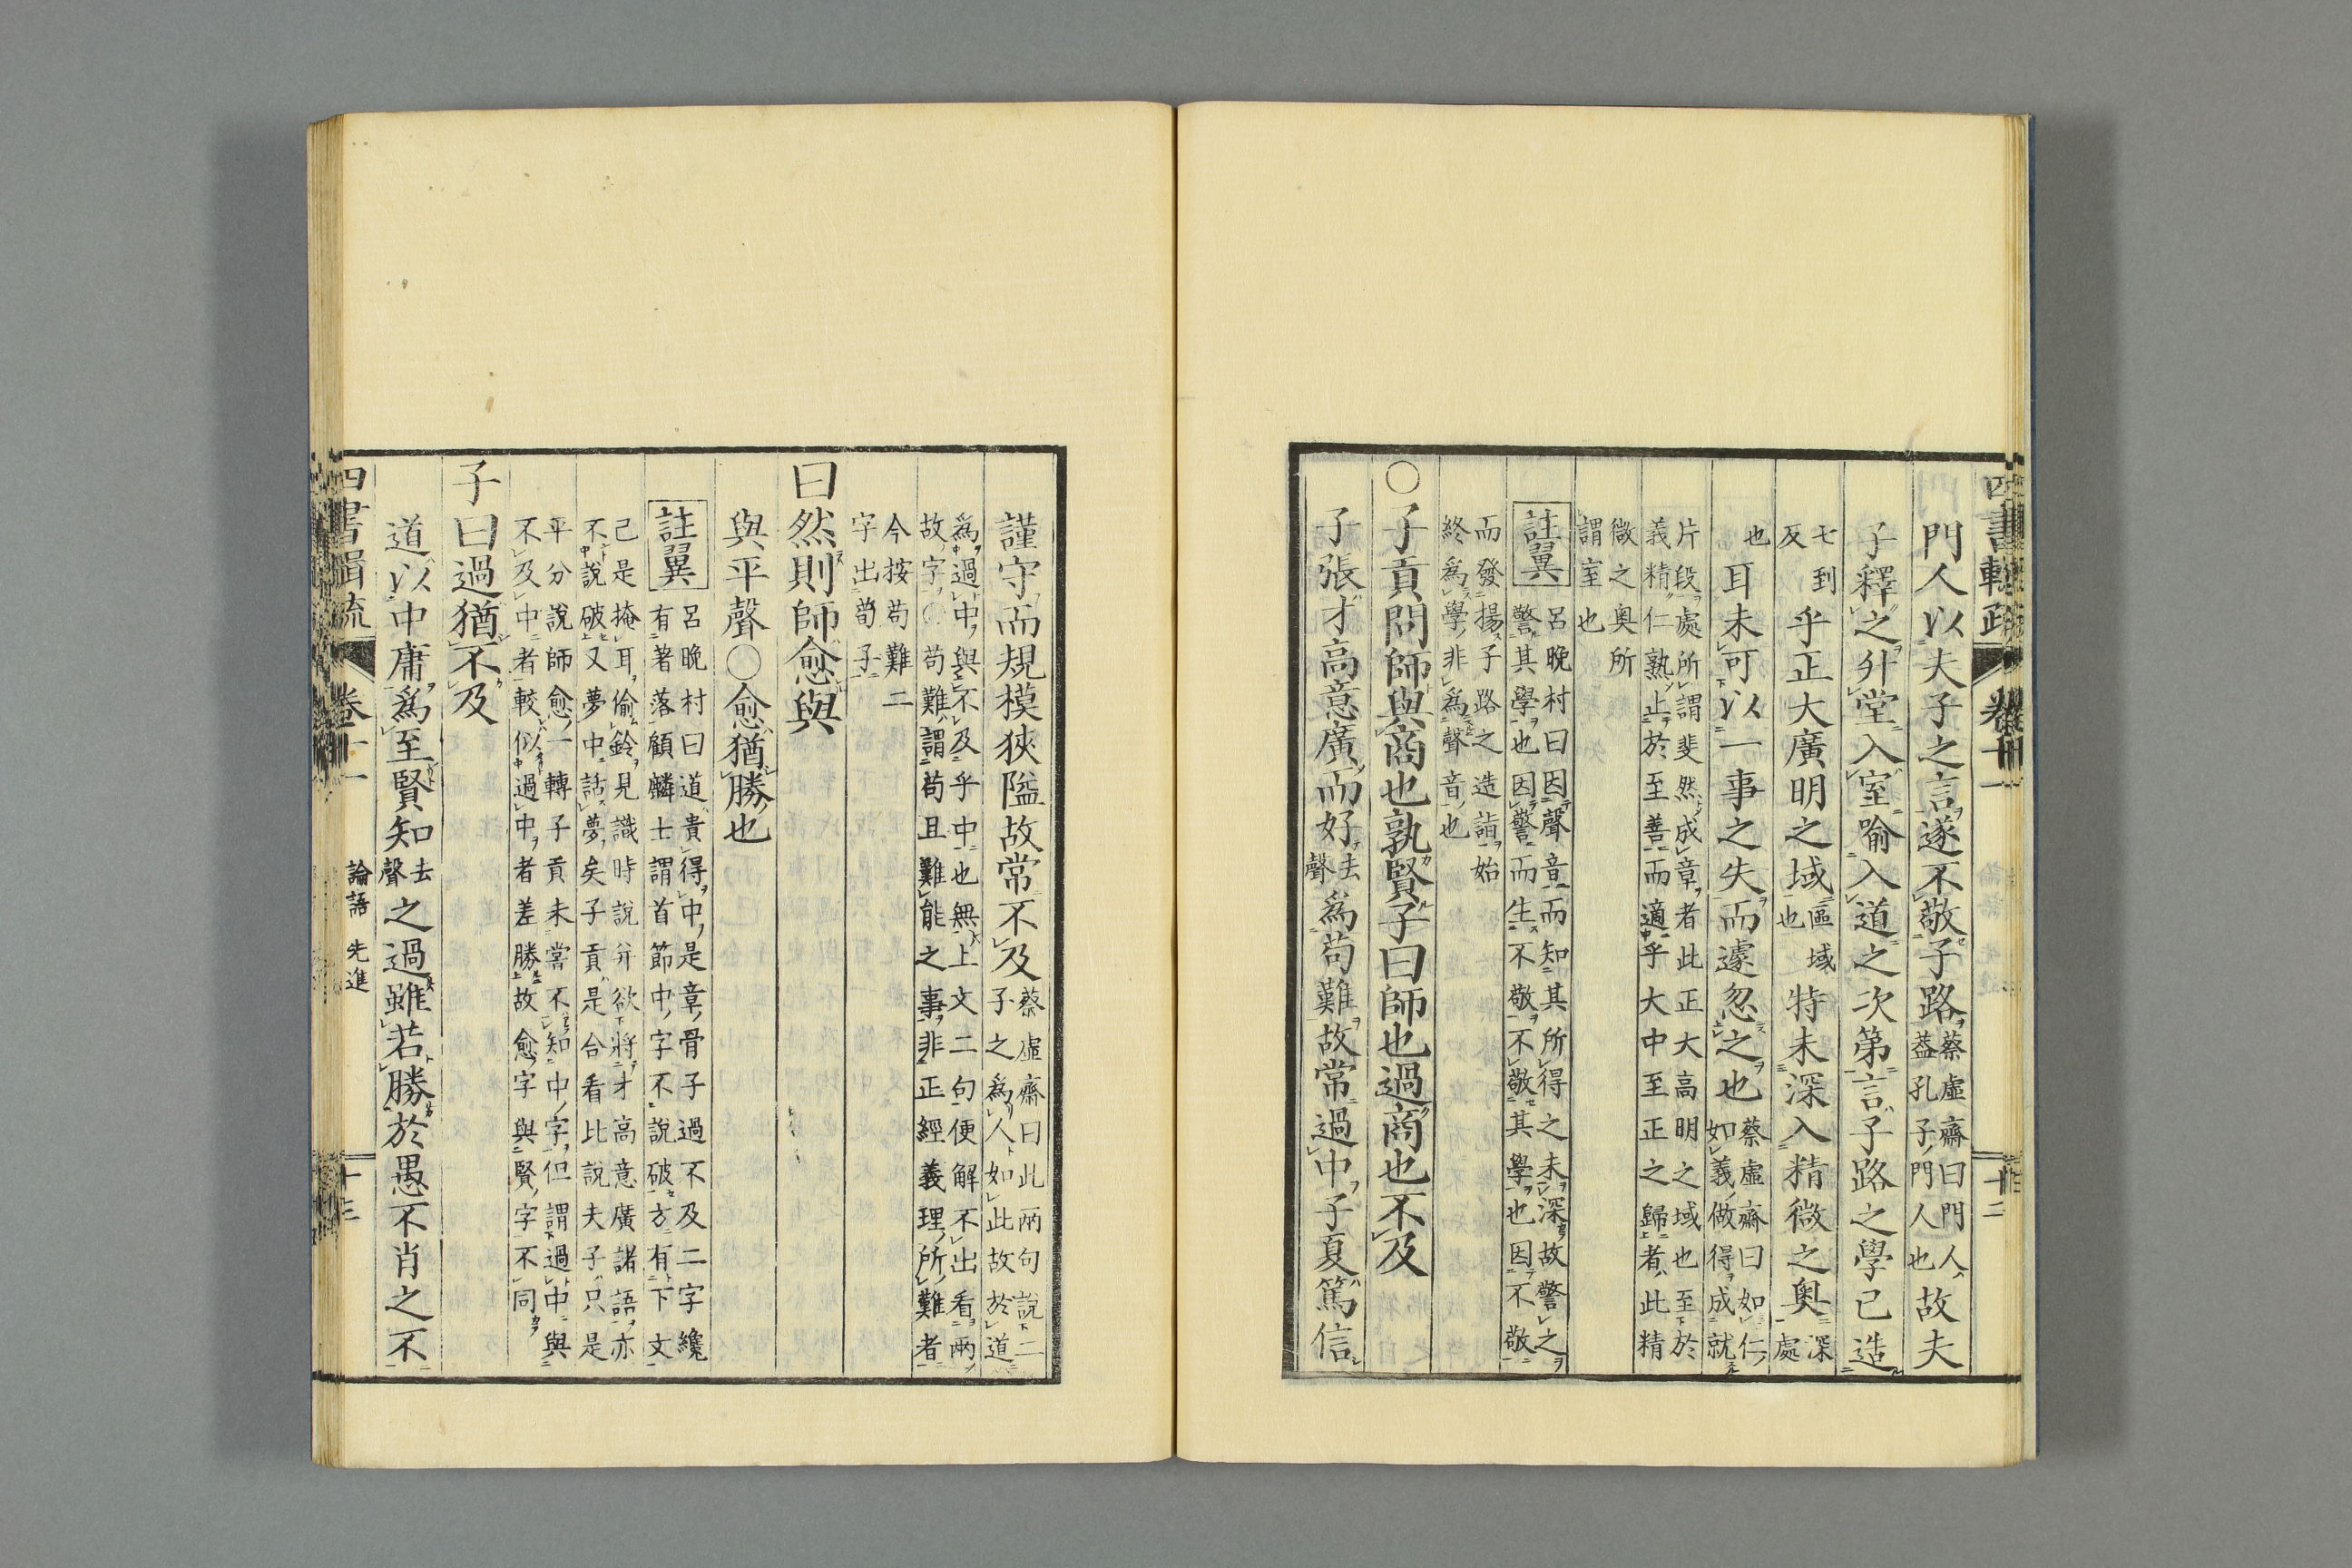 四書輯疏 卷十一 十二
門人以夫子之言遂不敬子路蔡虛齋曰門人蓋孔子門人也故夫
子釋之升堂入室喻入道之次第言子路之學已造
七到反乎正大廣明之域區域也特未深入精微之奧深處
也耳未可以一事之失而遽忽之也蔡虛齋曰如仁如義做得成就
片段處所謂斐然成章者此正大高明之域也至於
義精仁熟止於至善而適乎大中至正之歸者此精
微之奧所
謂室也
註翼
呂晚村曰因聲音而知其所得之未深故警之
警其學也因警而生不敬不敬其學也因不敬
而發揚子路之造詣始
終爲學非爲聲音也
○子貢問師與商也孰賢子曰師也過商也不及
子張才高意廣而好去聲爲苟難故常過中子夏篤信
謹守而規模狹隘故常不及蔡虛齋曰此兩句說二子之爲人如此故於道
爲過中與不及乎中也無上文二句便解不出看兩
故字○苟難謂苟且難能之事非正經義理所難者
今按苟難二
字出荀子
曰然則師愈與
與平聲○愈猶勝也
註翼
呂晚村曰道貴得中是章骨子過不及二字纔
有著落顧麟士謂首節中字不說破方有下文
己是掩耳偷鈴見識時說并欲將才高意廣諸語亦
不說破又夢中話夢矣子貢是合看比說夫子只是
平分說師愈一轉子貢未嘗不知中字但謂過中與
不及中者較似以過中者差勝故愈字與賢字不同
子曰過猶不及
道以中庸爲至賢知去聲之過雖若勝於愚不肖之不
四書輯疏 卷十一 論語 先進 十三